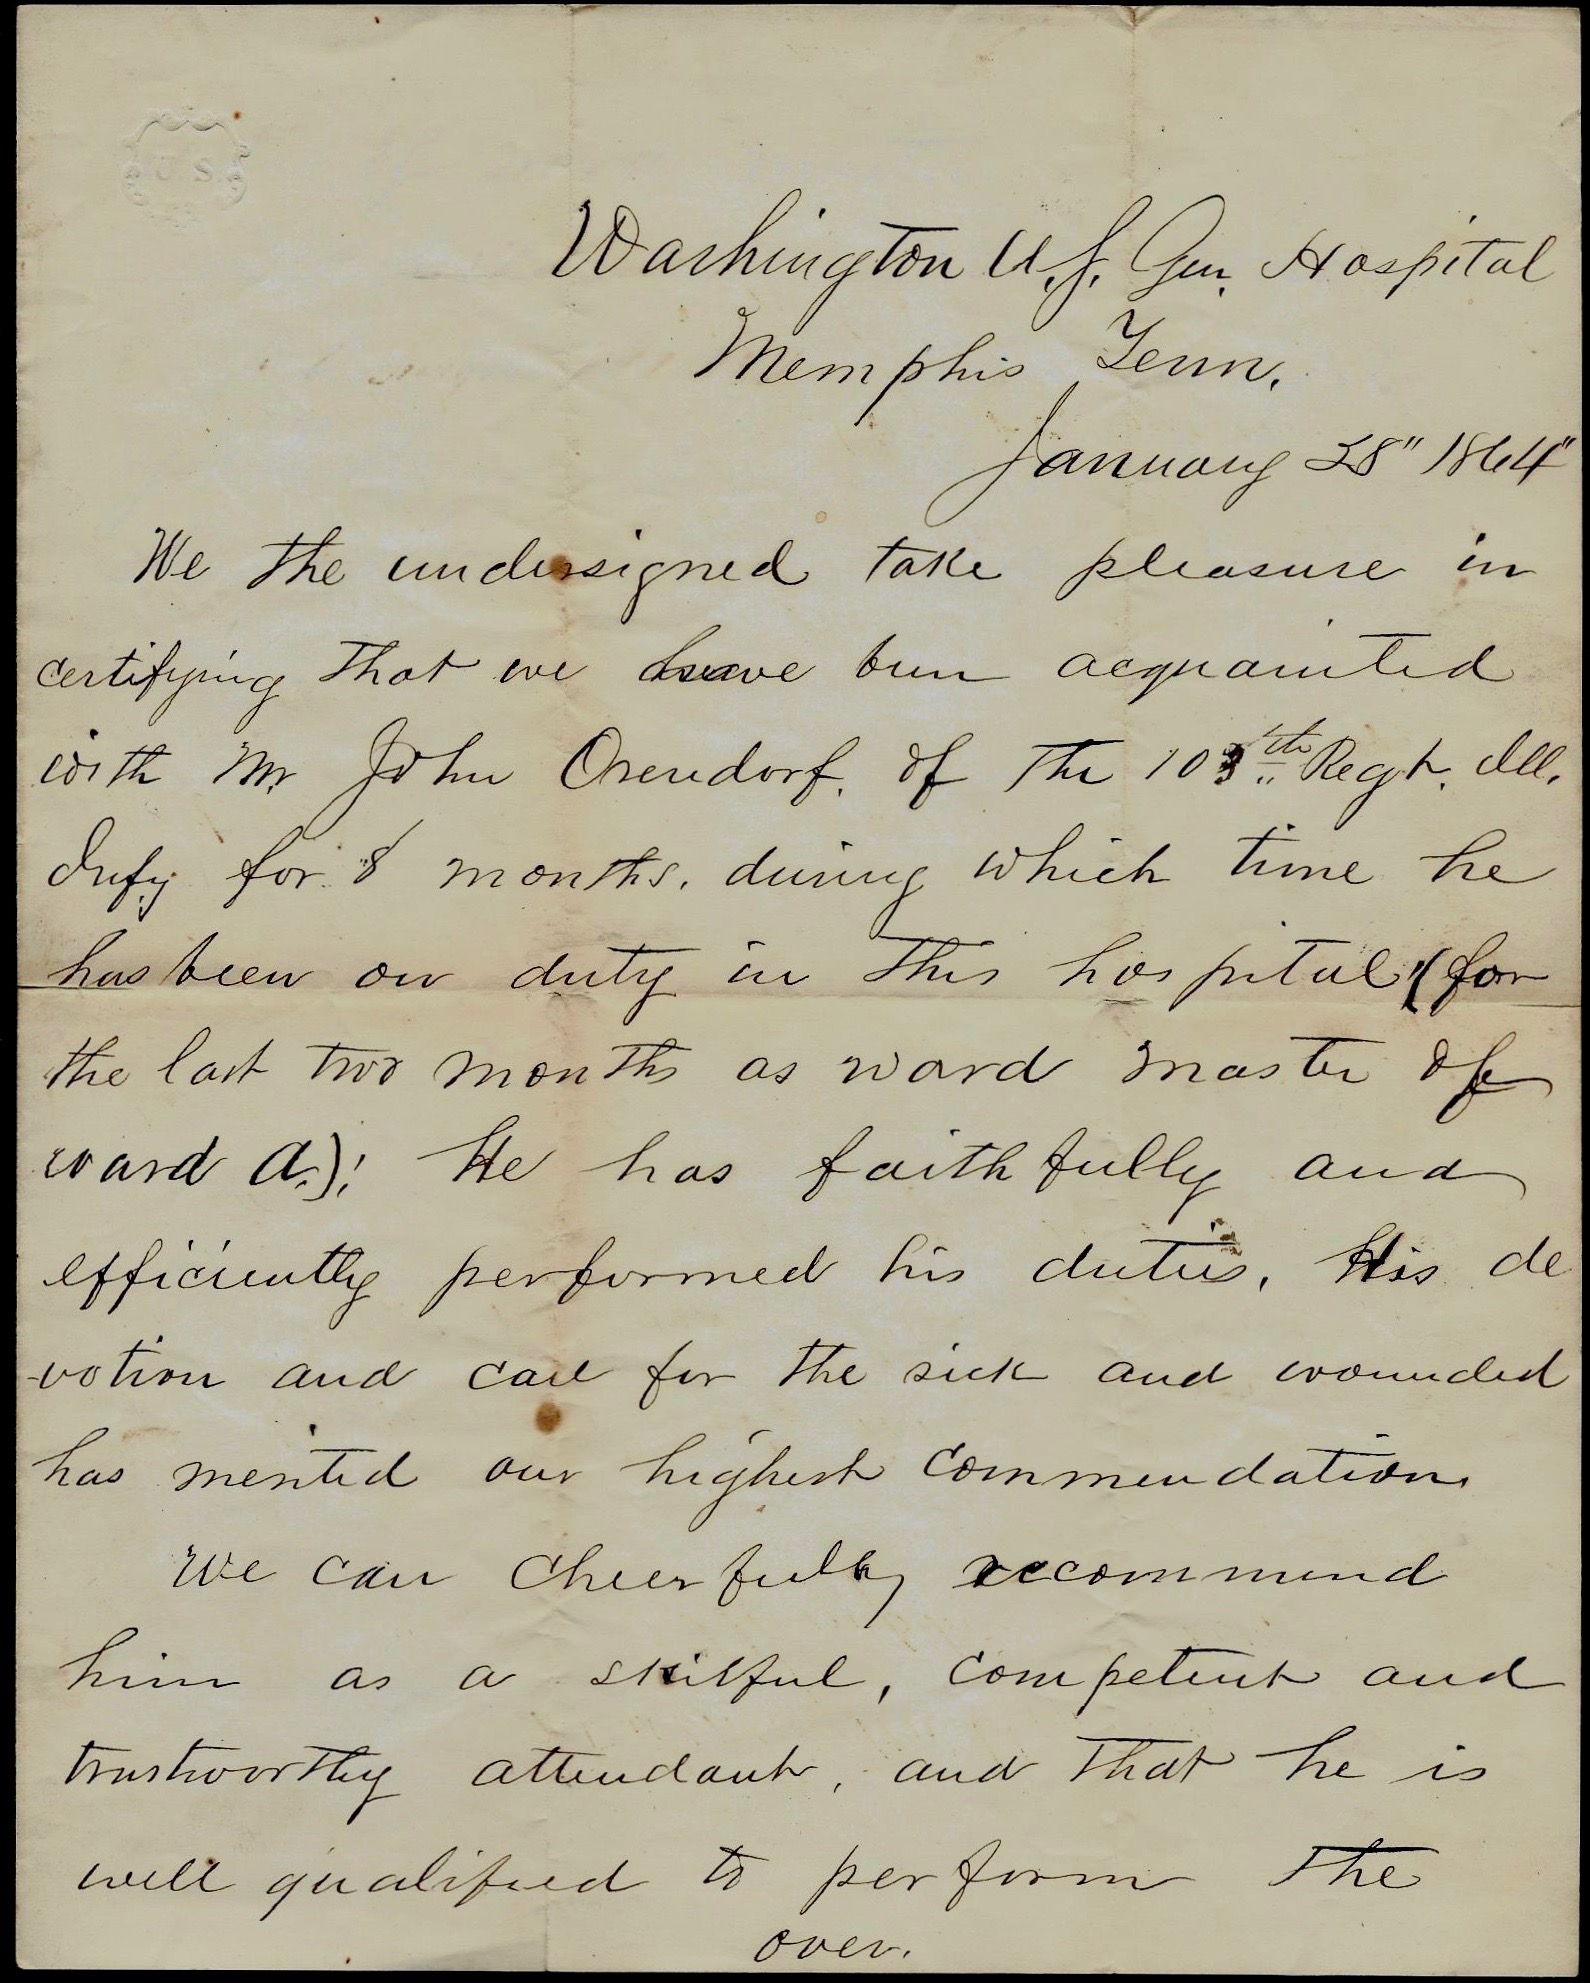 U S
Washington U.S. Gen. Hospital
Memphis Tenn.
January 28" 1864"
We the undersigned take pleasure in
certifying that we have been acquainted
with Mr. John Orendorf. of the 103th Regt. Ill.
Infy for 8 months. during which time he
has been on duty in this hospital (for
the last two months as ward master of
ward A.); He has faithfully and
efficiently performed his duties. His de
-votion and care for the sick and wounded
has merited our highest commendation.
We can cheerfully recommend
him as a skilful, competent and
trustworthy attendant, and that he is
well qualified to perform the
over.